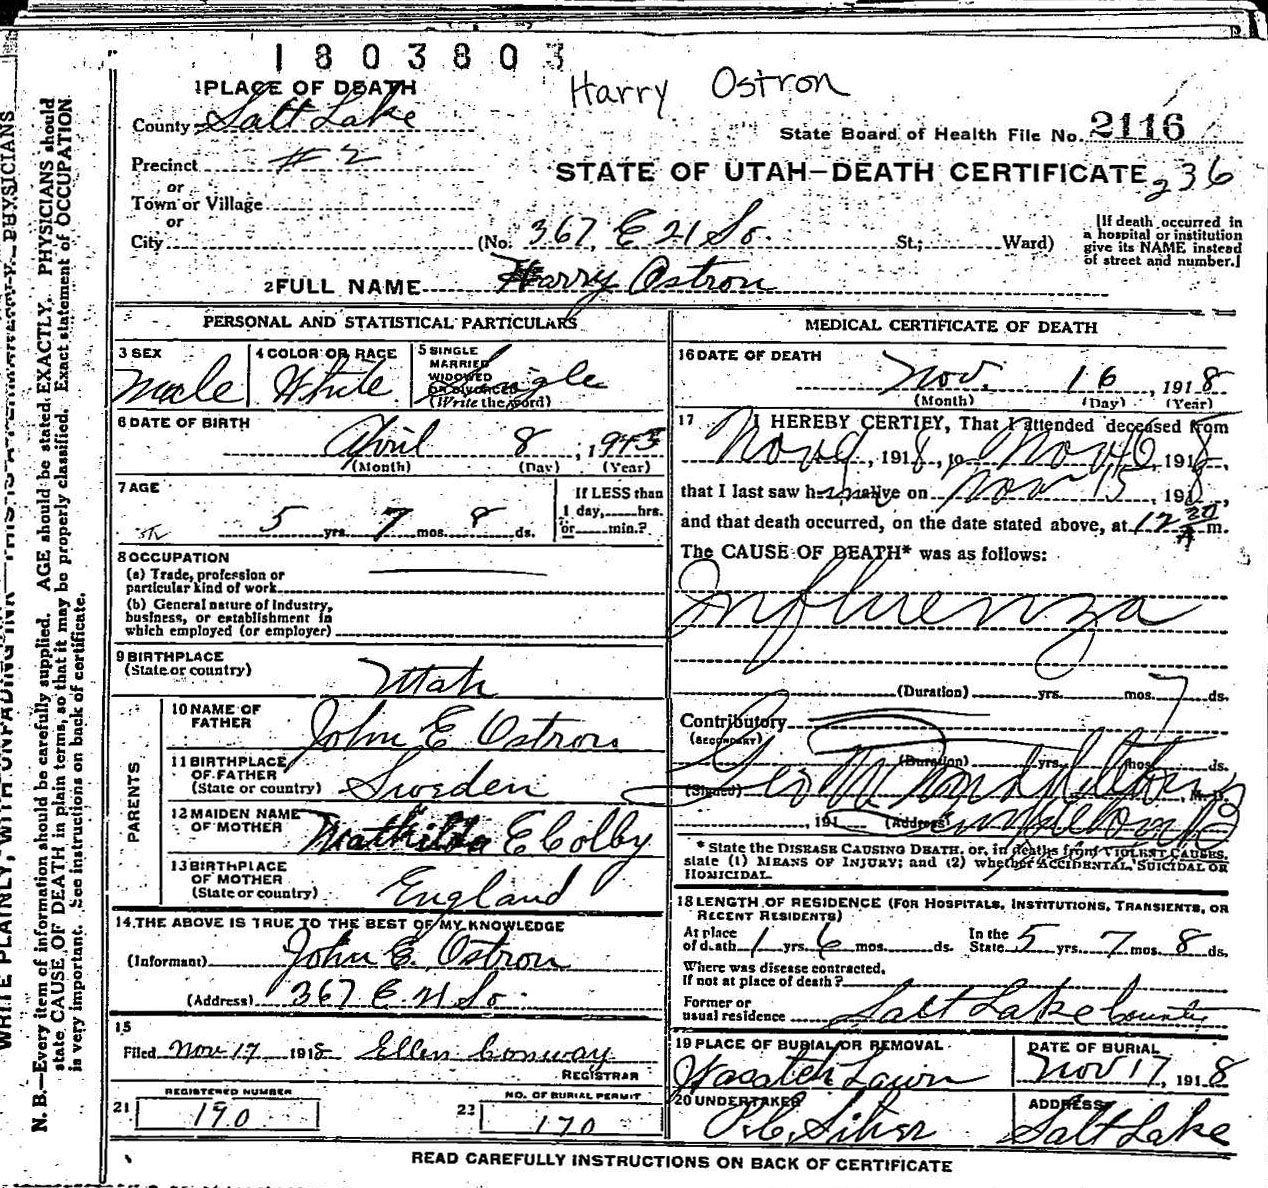 1803803
Harry Ostron
1 PLACE OF DEATH
County Salt Lake
State Board of Health File No. 2116
Precinct #2
STATE OF UTAH—DEATH CERTIFICATE 236
or
Town or Village
or
City (No. 367 E 21 So. St.; Ward)
[If death occurred in
a hospital or institution
give its NAME instead
of street and number.]
2 FULL NAME Harry Ostron
PERSONAL AND STATISTICAL PARTICULARS
3 SEX
Male
4 COLOR OR RACE
White
5 SINGLE
MARRIED
WIDOWED
OR DIVORCED
(Write the word)
Single
6 DATE OF BIRTH
April 8, 1913
(Month) (Day) (Year)
7 AGE
5 yrs. 7 mos. 8 ds.
If LESS than
1 day, hrs.
or min.?
8 OCCUPATION
(a) Trade, profession or
particular kind of work
(b) General nature of industry,
business, or establishment in
which employed (or employer)
9 BIRTHPLACE
(State or country)
Utah
PARENTS
10 NAME OF
FATHER
John E Ostron
11 BIRTHPLACE
OF FATHER
(State or country)
Sweden
12 MAIDEN NAME
OF MOTHER
Mathilda E Colby
13 BIRTHPLACE
OF MOTHER
(State or country)
England
14 THE ABOVE IS TRUE TO THE BEST OF MY KNOWLEDGE
(Informant) John E. Ostron
(Address) 367 E 21 So.
15
Filed Nov 17 1918 Ellen Conway
REGISTRAR
REGISTERED NUMBER
21 190
NO. OF BURIAL PERMIT
22 170
MEDICAL CERTIFICATE OF DEATH
16 DATE OF DEATH
Nov. 16, 1918
(Month) (Day) (Year)
17 I HEREBY CERTIFY, That I attended deceased from
Nov 9, 1918, to Nov 16, 1918,
that I last saw him alive on Nov 15, 1918,
and that death occurred, on the date stated above, at 12 30 A m.
The CAUSE OF DEATH* was as follows:
Influenza
(Duration) yrs. mos. 7 ds.
Contributory
(SECONDARY)
(Duration) yrs. mos. ds.
(Signed) Geo M. M. D.
, 191 (Address)
* State the DISEASE CAUSING DEATH, or, in deaths from VIOLENT CAUSES,
state (1) MEANS OF INJURY; and (2) whether ACCIDENTAL, SUICIDAL OR
HOMICIDAL.
18 LENGTH OF RESIDENCE (FOR HOSPITALS, INSTITUTIONS, TRANSIENTS, OR
RECENT RESIDENTS)
At place
of death 1 yrs. 6 mos. ds.
In the
State 5 yrs. 7 mos. 8 ds.
Where was disease contracted,
If not at place of death?
Former or
usual residence Salt Lake County
19 PLACE OF BURIAL OR REMOVAL
Wasatch Lawn
DATE OF BURIAL
Nov 17, 1918
20 UNDERTAKER
ADDRESS
Salt Lake
READ CAREFULLY INSTRUCTIONS ON BACK OF CERTIFICATE
N. B.—Every item of information should be carefully supplied. AGE should be stated EXACTLY. PHYSICIANS should
state CAUSE OF DEATH in plain terms, so that it may be properly classified. Exact statement of OCCUPATION
is very important. See instructions on back of certificate.